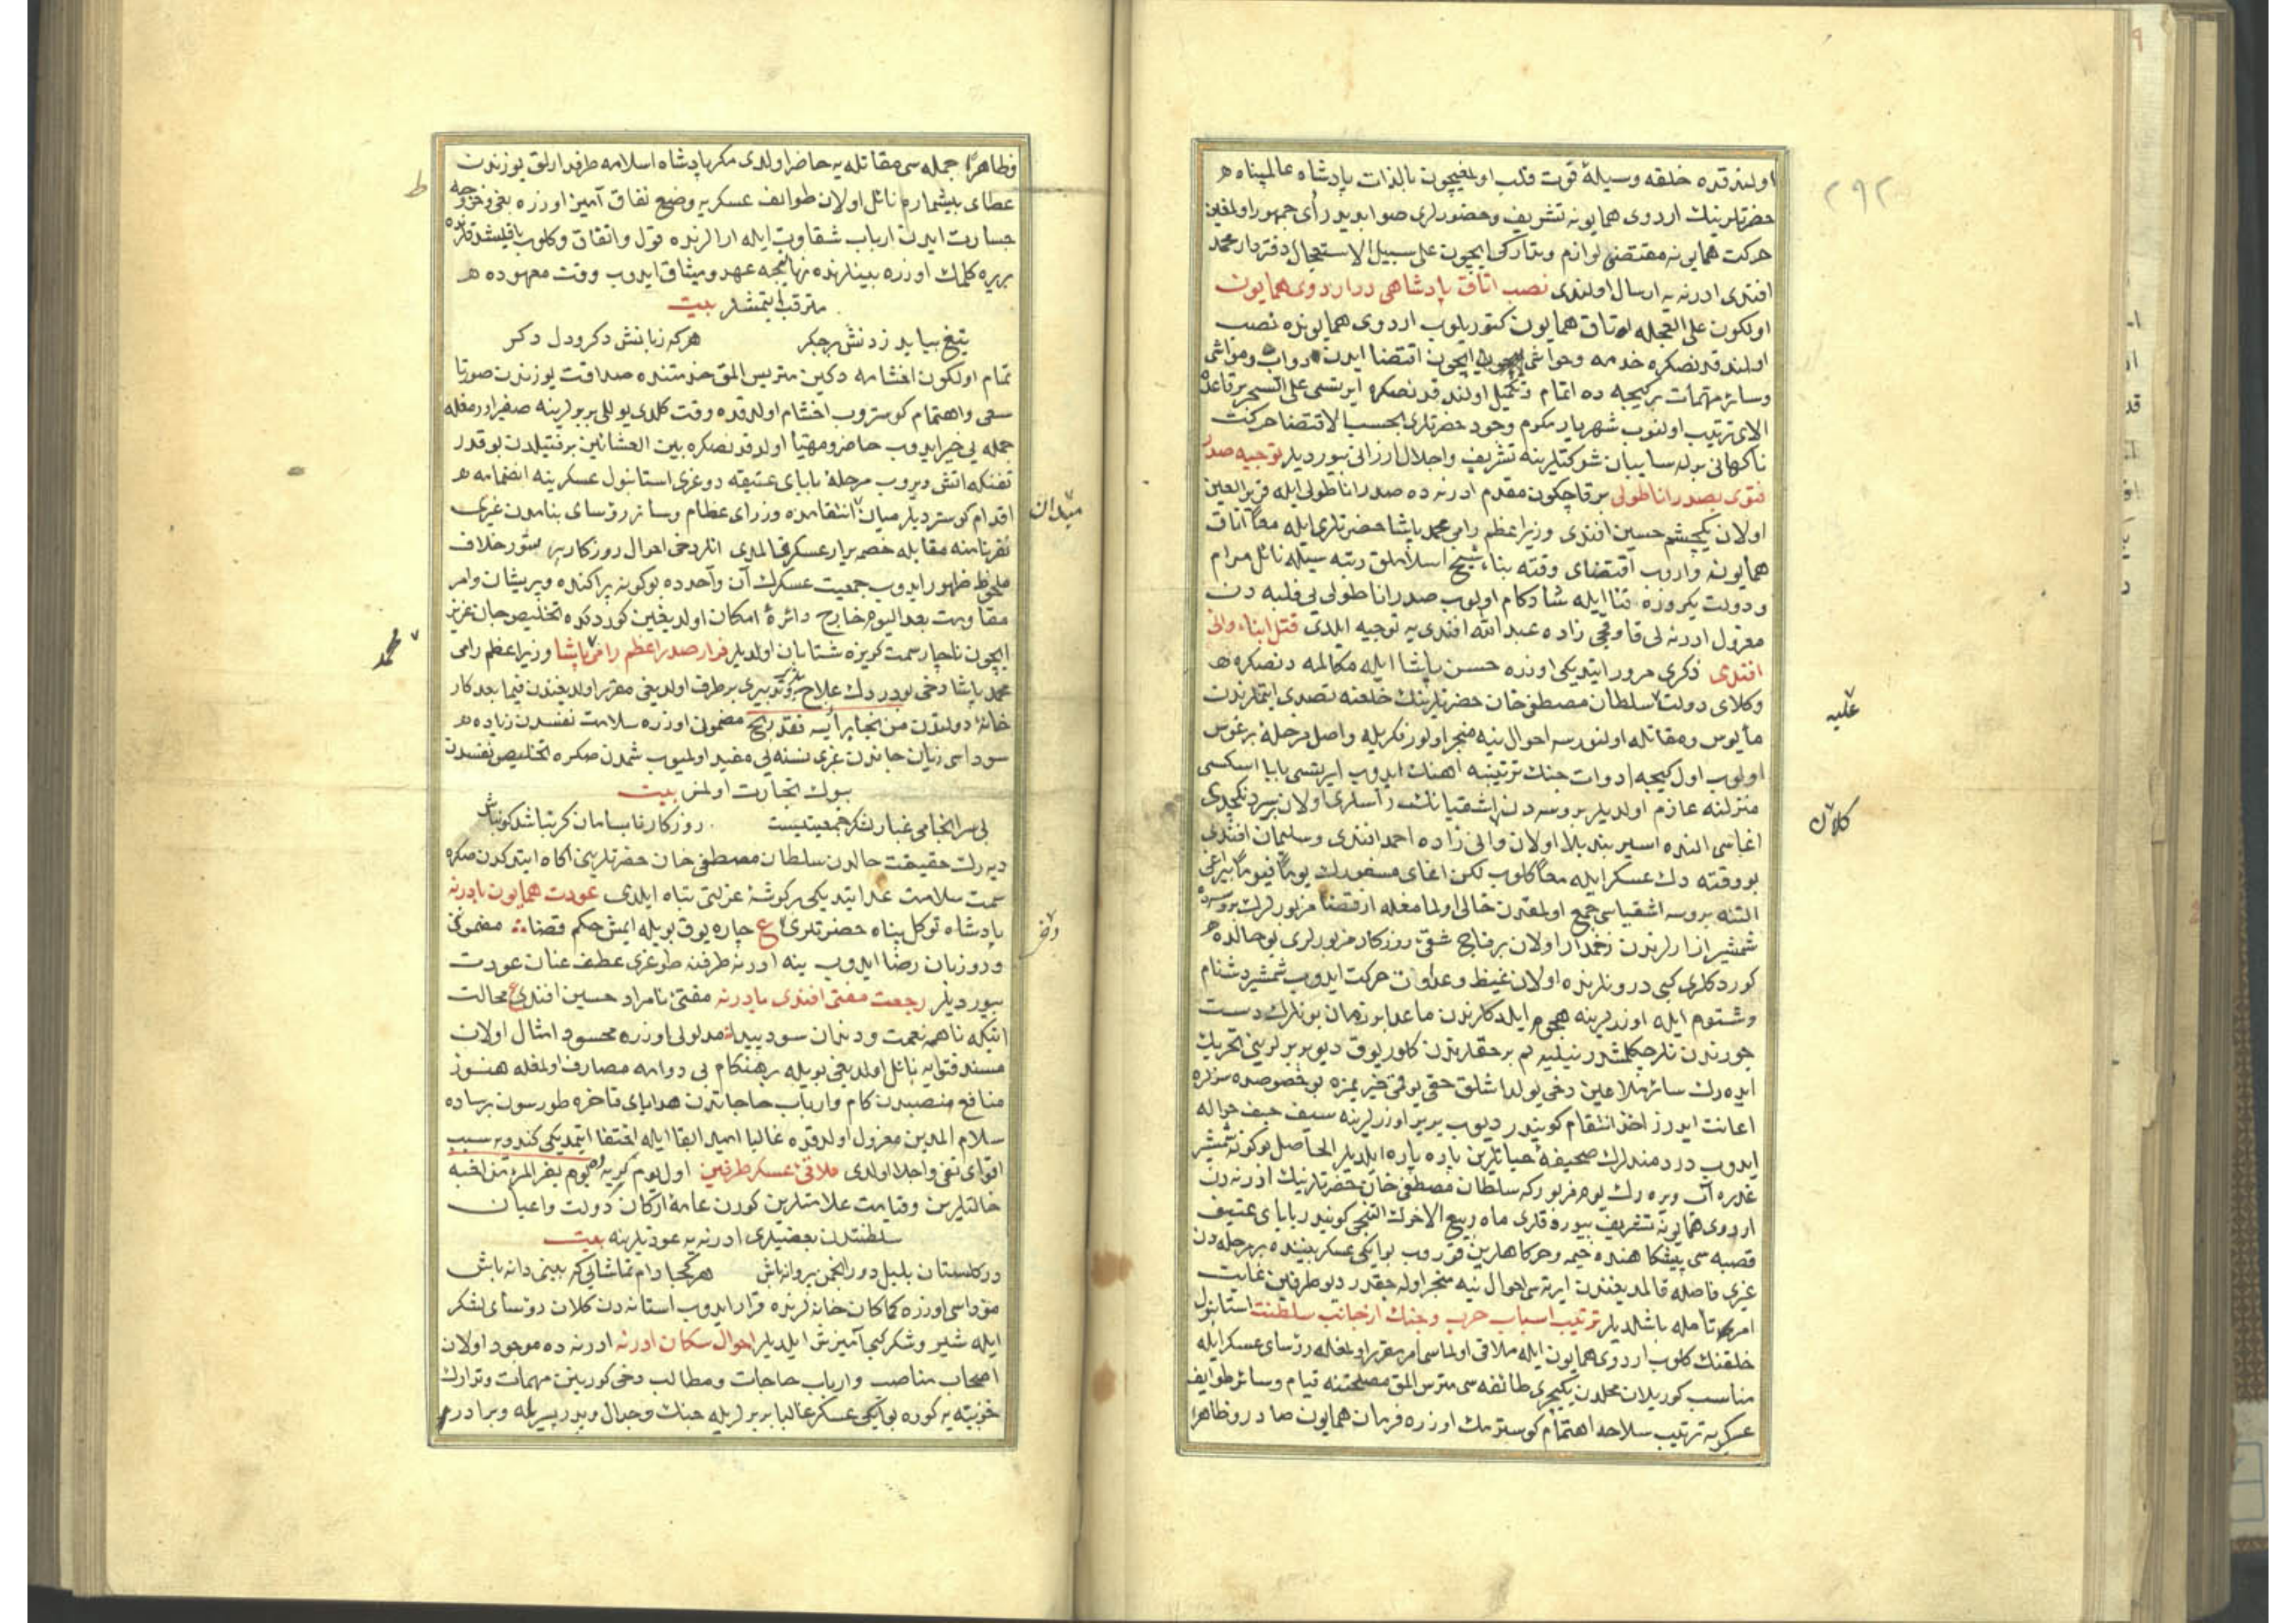 ٢٩٢
اولندقده خلقه وسیلهٔ قوت قلب اولمغیچون بالذات پادشاه عالمپناه
حضرتلرینك اردوی همایونه تشریف وحضورلری صوابدید رأی جمهور اولمغین
حرکت همایونه مقتضی لوازم وتدارکی ایچون علی سبیل الاستعجال دفتردار محمد
افندی ادرنه یه ارسال اولندی نصب اتاق پادشاهی در اردوی همایون
اولکون علی العجله اوتاق همایون کتوریلوب اردوی همایونده نصب
اولندقدنصکره خدمه وحواشی ایچون اقتضا ایدن دواب ومواشی
وسائر مهمات برکیجه ده اتمام وتکمیل اولندقدنصکره ایرتسی علی السحر برقاعده
الای ترتیب اولنوب شهریار مکرم وجود حضرتلری بحسب الاقتضا حرکت
ناکهانی برله سایبان شوکتلرینه تشریف واجلال ارزانی بیوردیلر توجیه صدر
فتوی بصدر اناطولی برقاچکون مقدم ادرنه ده صدر اناطولی ایله قریر العین
اولان یکچشم حسین افندی وزیراعظم رامی محمد پاشا حضرتلری ایله معا اتاق
همایونه واروب اقتضای وقته بناء شیخ اسلاملق رتبه سیله نائل مرام
ودولت یکروزه فنا ایله شادکام اولوب صدر اناطولی بی قلبه دن
معزول ادرنه لی قاوقجی زاده عبد الله افندی یه توجیه ایلدی قتل ابناء وانی
افندی ذکری مرور ایتدیکی اوزره حسن پاشا ایله مکالمه دنصکره
وکلای دولت سلطان مصطفی خان حضرتلرینك خلعنه تصدی ایتملرندن
علیه
مأیوس ومقاتله اولنورسه احوال نیه منجر اولور فکریله واصل مرحلهٔ برغوس
اولوب اول کیجه ادوات جنك ترتیبنه اهنك ایدوب ایرتسی بابا اسکسی
منزلنه عازم اولدیلر بروسه دن اشقیانك رأسلری اولان سردنکچدی
کلان
اغاسی النده اسیر بند بلا اولان وانی زاده احمد افندی وسلیمان افندی
بو وقته دك عسکر ایله معا کلوب لکن اغای مسفورك یوما فیوما بیراغی
التنه بروسه اشقیاسی جمع اولمقدن خالی اولمامغله ازقضا مزبورلرك بروسه ده
شمشیر ازارلرندن زخمدار اولان برقاچ شقئ روزکار مزبورلری بو حالده
کوردکلری کبی درونلرنده اولان غیظ وعداوت حرکت ایدوب شمشیر دشنام
وشتوم ایله اوزرلرینه هجوم ایلدکلرندن ماعدا بو زمان بونلرك دست
جورندن نلر چکلمشدر نیلیه لم برحقارتدن کلور یوق دیو بربرلرینی تحریك
ایده رك سائر ملاعین دخی یولداشلق حقی یوقمی خیر یمزه بو خصوصده سزلره
اعانت ایدرز اخذ انتقام کونیدر دیوب بربر اوزرلرینه سیف حیف حواله
ایدوب دردمندلرك صحیفهٔ حیاتلرین پاره پاره ایلدیلر الحاصل بوکونه شمشیر
غدره آب ویره رك یوم مزبورکه سلطان مصطفی خان حضرتلرینك ادرنه دن
اردوی همایونه تشریف بیوردقلری ماه ربیع الاخرك التنجی کونیدر بابای عتیق
قصبه سی پیشکاهنده خیمه وخرکاهلرین قوروب بو ایکی عسکر بیننده بر مرحله دن
غیری فاصله قالمدیغندن ایرته سی احوال نیه منجر اوله جقدر دیو طرفین غایت
امر تأمله باشلدیلر ترتیب اسباب حرب وجنك از جانب سلطنت استانبول
خلقنك کلوب اردوی همایون ایله ملاقی اولماسی امر مقرر اولمغله رؤسای عسکر ایله
مناسب کوریلان محلدن یکیچری طائفه سی مترس المق مصلحتنه قیام وسائر طوایف
عسکریه ترتیب سلاحه اهتمام کوسترمك اوزره فرمان همایون صادر وظاهرا
وظاهرا جمله سی مقاتله یه حاضر اولدی مکر پادشاه اسلامه طرفدارلق یوزندن
عطای بیشماره نائل اولان طوائف عسکریه وضع نفاق آمیز اوزره بغی وخروجه
ط
جسارت ایدن ارباب شقاوت ایله ارالرنده قول واتفاق وکلوب یاقلشدقلرنده
بریره کلمك اوزره بینلرنده نهانیجه عهد ومیثاق ایدوب وقت معهوده
مترقب ایتمشلر بیت
بتیغ بباید زدنش برجکر هرکه زبانش دکر ودل دکر
تمام اولکون اخشامه دکین متریس المق خدمتنده صداقت یوزندن صورتا
سعی واهتمام کوستروب اخشام اولدقده وقت کلدی یوللی بربرلرینه صفیر اورمغله
جمله یی خبیر ایدوب حاضر ومهیا اولدقدنصکره بین العشائین برفتیلدن بوقدر
تفنکه اتش ویروب مرحلهٔ بابای عتیقه دوغری استانبول عسکرینه انضمامه
اقدام کوستردیلر میان انتقامده وزرای عظام وسائر رؤسای بنامدن غیری
میدان
نفرنامنه مقابله خصمه یرار عسکر قالمدی انلر دخی احوال روزکار بد ستور خلاف
ملحوظ ظهور ایدوب جمعیت عسکرك آن واحدده بوکونه پراکنده وپریشان وامر
مقاومت بعد الیوم خارج دائرهٔ امکان اولدیغین کوردکده تخلیص جان عزیز
ایچون ناچار سمت کریزه شتابان اولدیلر فرار صدر اعظم رامی پاشا وزیراعظم رامی
محمد
محمد پاشا دخی بو دردك علاج وتدبیری برطرف اولدیغی مقرر اولدیغندن فیما بعد کار
خانهٔ دولتدن من نجا برأسه فقد ربح مضمونی اوزره سلامت نفسدن زیاده
سوداسی زیان جاندن غیری نسنه یی مفید اولمیوب شمدن صکره تخلیص نفسدن
بیوك تجارت اولمز بیت
بی سرانجامی غبار لشکر جمعیتیست روزکار نابسامان کر نباشد کو نباش
دیه رك حقیقت حالدن سلطان مصطفی خان حضرتلرینی اکاه ایتدکدن صکره
سمت سلامت عد ایتدیکی بر کوشهٔ عزلتی پناه ایلدی عودت همایون بادرنه
پادشاه توکل پناه حضرتلری ع چاره یوق بویله ایمش حکم قضا مضموننی
ورد زبان رضا ایدوب ینه ادرنه طرفنه طوغری عطف عنان عودت
بیوردیلر رجعت مفتی افندی بادرنه مفتئ نامراد حسین افندی ع محالت
انیکه ناهمه نعمت ودندان سود بیدا مدلولی اوزره محسود امثال اولان
مسند فتوایه نائل اولدیغی بویله بر هنکام بی دوامه مصادف اولمغله هنوز
منافع منصبدن کام وارباب حاجاتدن هدایای فاخره طورسون برساده
سلام المدین معزول اولدقده غالبا امید ابقا ایله اختفا ایتمدیکی کندویه سبب
اقوای نفی واجلا اولدی ملاقئ عسکر طرفین اول یوم کریه وهجوم یفر المرء من اخیه
حالتلرین وقیامت علامتلرین کورن عامهٔ ارکان دولت واعیان
سلطنتدن بعضیلری ادرنه یه عودتلرینه بیت
در کلستان بلبل ودر انجمن پروانه باش هر کجا دام تماشایی که بینی دانه باش
مؤداسی اوزره کماکان خانه لرنده قرار ایدوب استانه دن کلان رؤسای لشکر
ایله شیر وشکر کبی آمیزش ایلدیلر احوال سکان ادرنه ادرنه ده موجود اولان
اصحاب مناصب وارباب حاجات ومطالب دخی کوربنن مهمات وتدارك
خونیته یه کوره بو ایکی عسکر غالبا بربرلریله جنك وجدال وپدر پسریله وبرادر